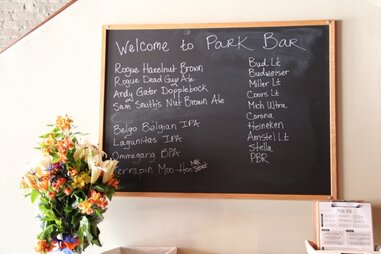 Welcome to Park Bar
Rogue Hazelnut Brown
Rogue Dead Guy Ale
Andy Gator Dopplebock
Sam Smith's Nut Brown Ale
Belgo Belgian IPA
Lagunitas IPA
Ommegang BPA
Terrapin Moo-Hoo Milk Stout
Bud Lt
Budweiser
Miller Lt
Coors Lt
Mich Ultra
Corona
Heineken
Amstel Lt
Stella
PBR